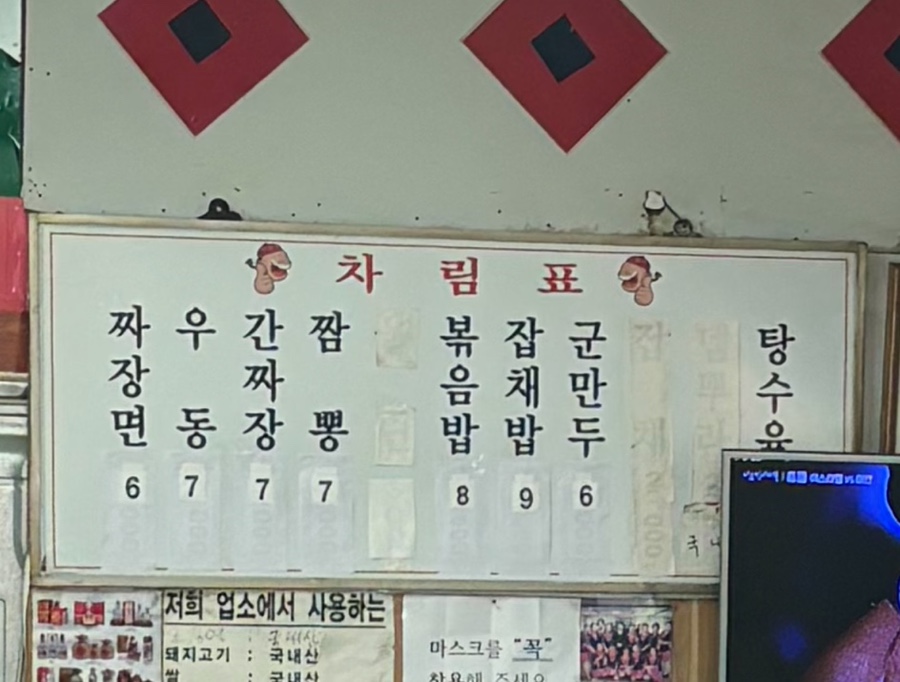 차림표
짜장면 6
우동 7
간짜장 7
짬뽕 7
볶음밥 8
잡채밥 9
군만두 6
탕수육
저희 업소에서 사용하는
돼지고기 : 국내산
쌀 : 국내산
마스크를 "꼭"
착용해 주세요